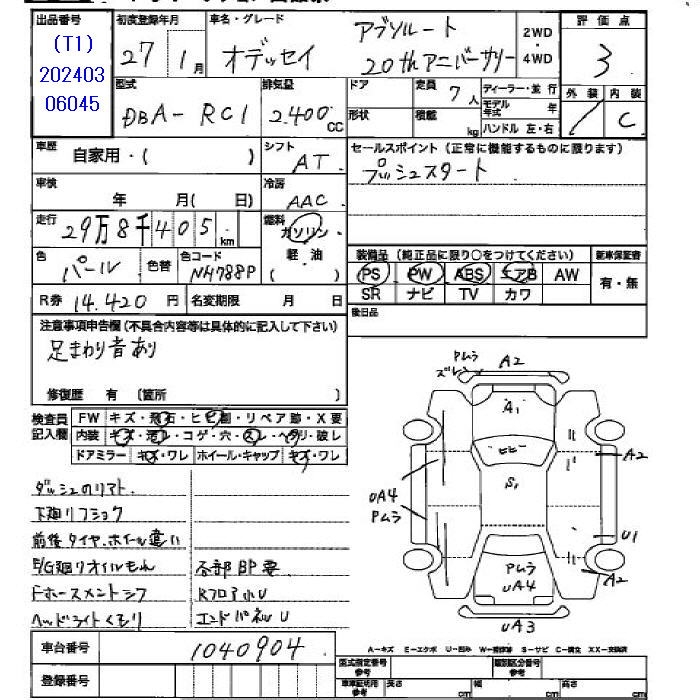 出品番号 初度登録年月 車名・グレード 評価点
(T1)
202403
06045
27 1月 オデッセイ アブソルート 20thアニバーサリー 2WD・4WD 3
型式 排気量 ドア 定員 7人 ディーラー・並行 外装 内装
DBA-RC1 2.400cc 形状 積載 kg モデル年式 年 C
ハンドル 左・右
車歴 自家用・( ) シフト AT セールスポイント (正常に機能するものに限ります)
プッシュスタート
車検 年 月( 日) 冷房 AAC
走行 29万8千405km 燃料 ガソリン・軽油 ( )
色 パール 色替 色コード NH788P
装備品 (純正品に限り○をつけてください) 新車保証書
PS PW ABS エアB AW 有・無
SR ナビ TV カワ
R券 14.420円 名変期限 月 日 後日品
注意事項申告欄 (不具合内容等は具体的に記入して下さい)
足まわり音あり
修復歴 有 〔箇所 〕
検査員記入欄 FW キズ・飛石・ヒビ割・リペア跡・X要
内装 キズ・汚レ・コゲ・穴・スレ・ヘタリ・破レ
ドアミラー キズ・ワレ ホイール・キャップ キズ・ワレ
ダッシュのリアト
下廻リフショク
前後タイヤ.ホイール違い
E/G廻リオイルもれ 各部BP要
Fホースメントシフ Rフロア小U
ヘッドライトくもり エンドパネルU
Pムラ
ズレ
A2
A1
ヒビー
S1
UA4
Pムラ
A2
U1
A2
Pムラ
UA4
UA3
車台番号 1040904
登録番号
A-キズ E-エクボ U-凹み W-補修跡 S-サビ C-腐食 XX-交換済
型式指定番号 参考 類別区分番号 参考
車車証明用 参考 長さ cm 幅 cm 高さ cm